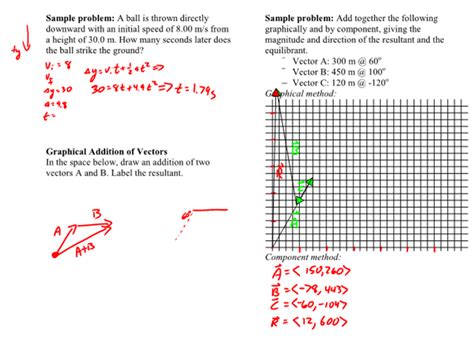 Sample problem: A ball is thrown directly
downward with an initial speed of 8.00 m/s from
a height of 30.0 m. How many seconds later does
the ball strike the ground?
+y
Vi = 8
Vf
Δy = 30
a = 9.8
t =
Δy = Vi t + ½ a t² ⇒
30 = 8t + 4.9t² ⇒ t = 1.79s
Graphical Addition of Vectors
In the space below, draw an addition of two
vectors A and B. Label the resultant.
A
B
A+B
Sample problem: Add together the following
graphically and by component, giving the
magnitude and direction of the resultant and the
equilibrant.
Vector A: 300 m @ 60°
Vector B: 450 m @ 100°
Vector C: 120 m @ -120°
Graphical method:
Component method:
A = <150, 260>
B = <-78, 443>
C = <-60, -104>
R = <12, 600>